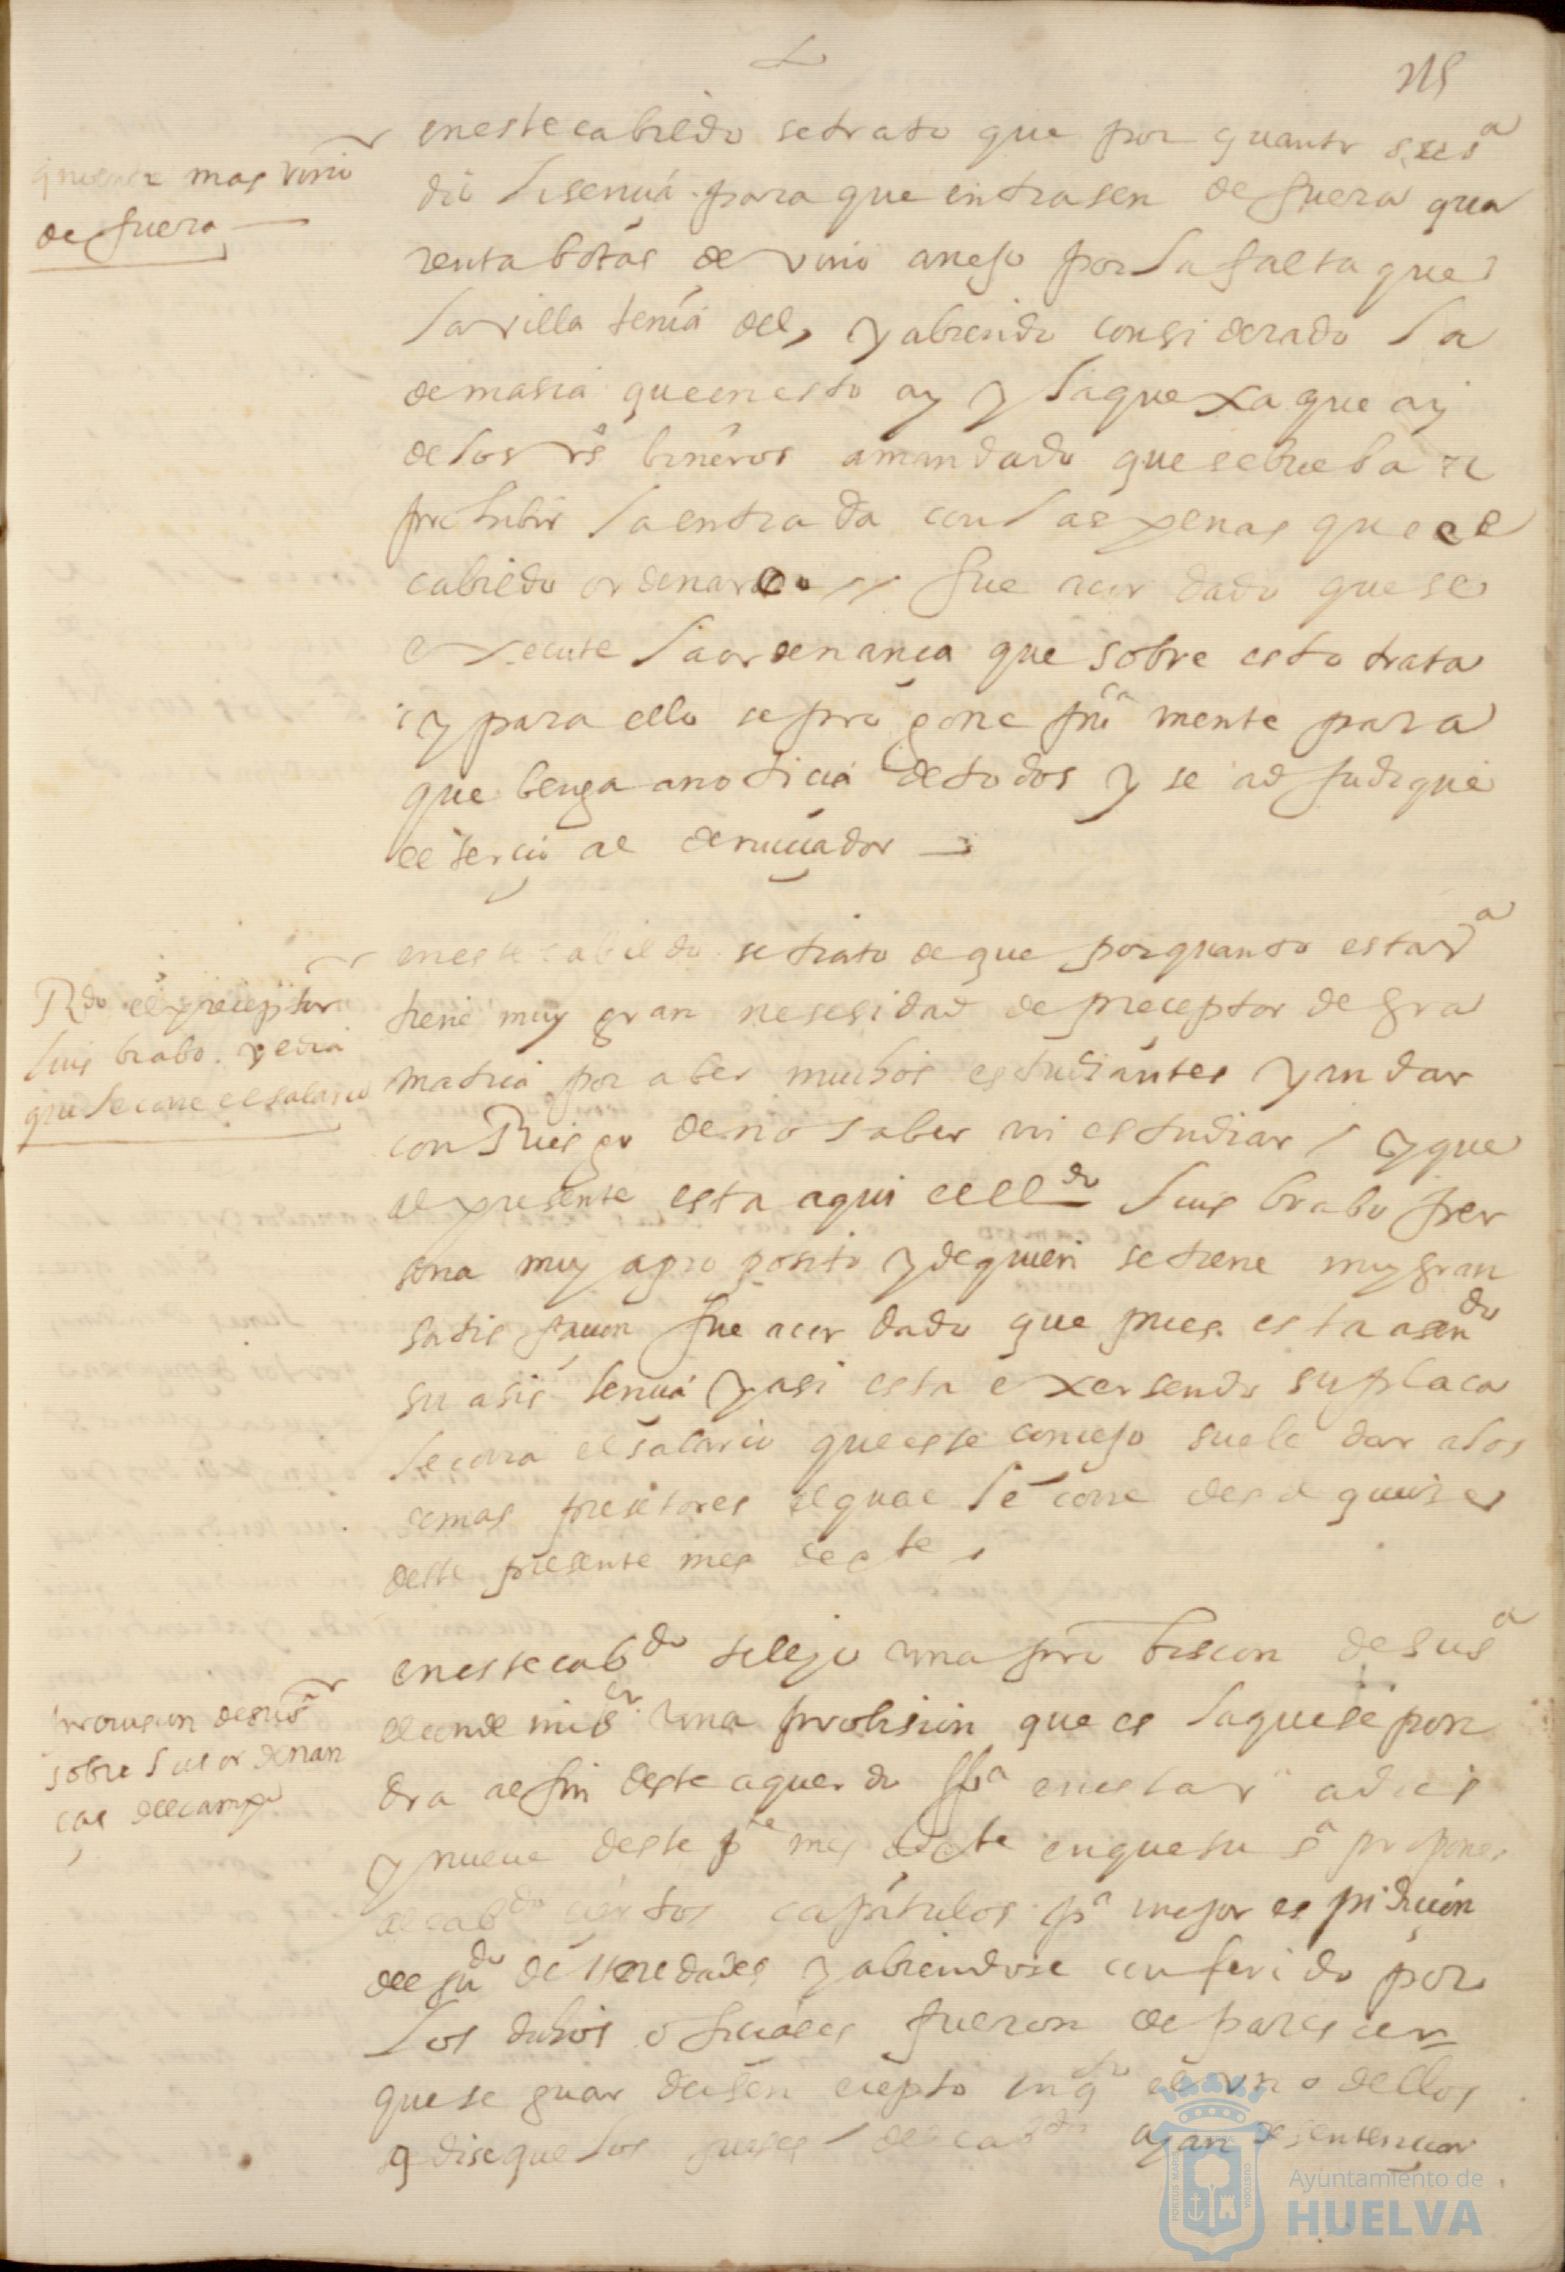 en este cabildo se trato que por quanto su sª
dio lisencia para que entrasen de fuera qua
renta botas de vino anejo por la falta que
la villa tenia del, y abiendo considerado la
demasia que en esto ay y la quexa que ay
de los vsº bineros a mandado que se buelba a
prohibir la entrada con las penas que el
cabildo ordenare // fue acordado que se
execute la ordenança que sobre esto trata
y para ello se pregone puca mente para
que benga a noticia de todos y se adjudique
el tercio al denunciador
que no entre mas vino
de fuera
en este cabildo se trato de que por quanto esta vª
tiene muy gran nesesidad de preceptor de gra
matica por aber muchos estudiantes y andar
con Riesgo de no saber ni estudiar / y que
al presente esta aqui el lldo luis brabo per
sona muy a proposito y de quien se tiene muy gran
satisfacion fue acordado que pues esta asendo
su asistencia y asi esta exersendo su plaça
le corra el salario que este concejo suele dar a los
demas presetores el qual le corre desde quinse
deste presente mes de
Rdo el preceptor
luis brabo y
que le corre el salario
en este cabdo se leyo una probision de su sª
el conde mi sr una probision que es la que se pon
dra al fin deste aquerdo fha en esta vª a dies
y nueve deste pte mes de en que su sª propone
al cabdo ciertos capitulos pª mejor espidicion
del judo de eredades y abiendose conferido por
los dichos oficiales fueron de parescer
que se guardasen ecepto en qto el uno dellos
q dise que los jueses del cabdo ayan de sentenciar
provision de su sª
sobre las ordenan
ças del campo
Ayuntamiento de
HUELVA